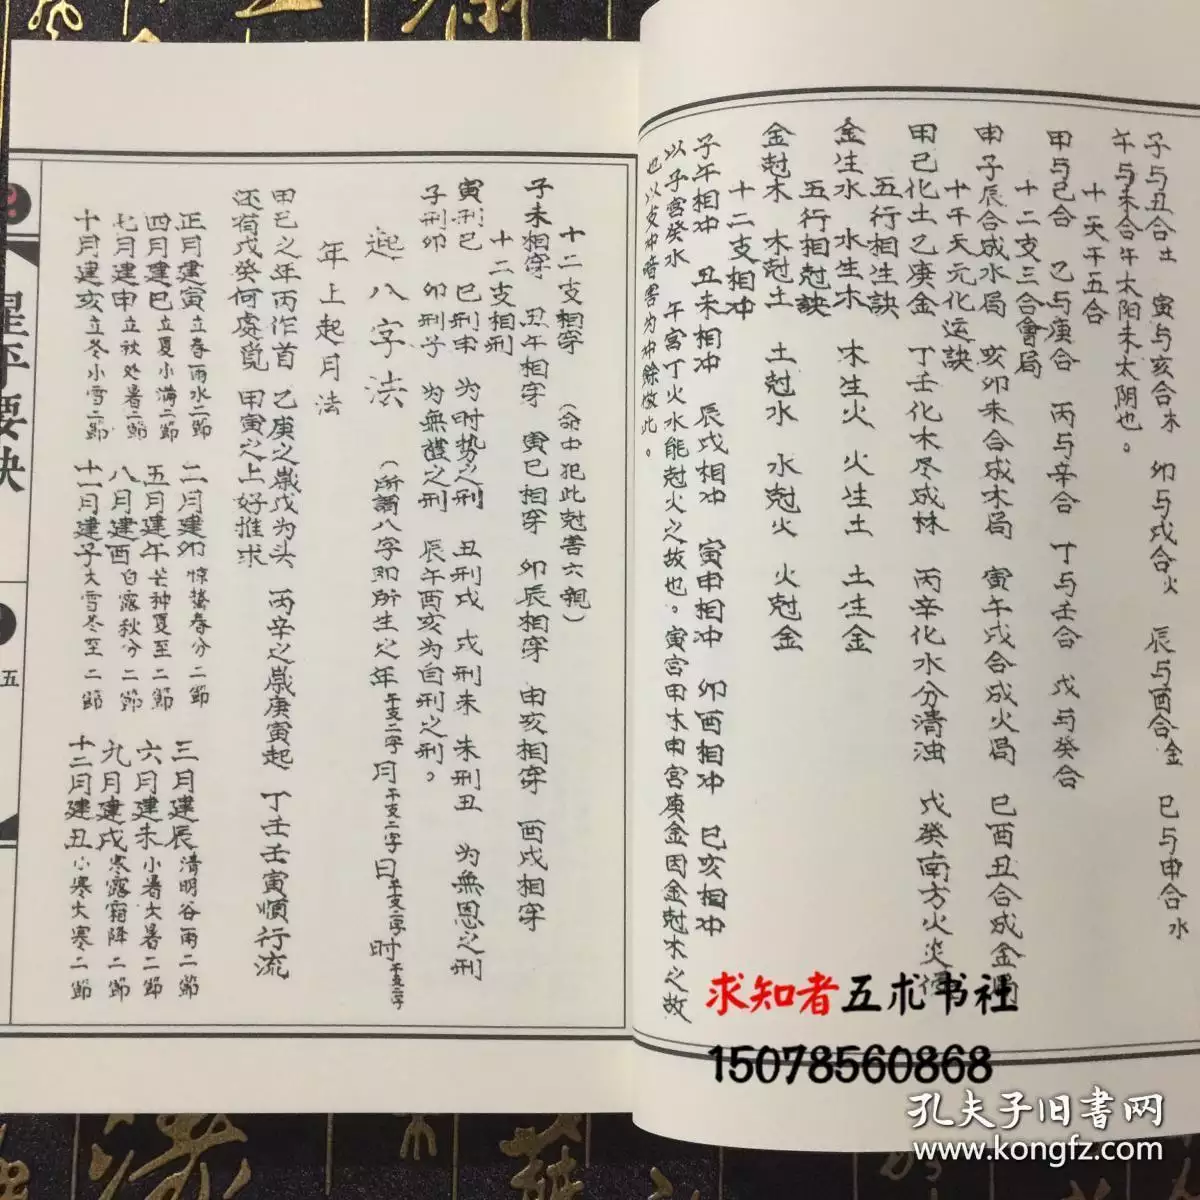 子与丑合土　寅与亥合木　卯与戌合火　辰与酉合金　巳与申合水
午与未合午太阳未太阴也。
十天干五合
甲与己合　乙与庚合　丙与辛合　丁与壬合　戊与癸合
十二支三合會局
申子辰合成水局　亥卯未合成木局　寅午戌合成火局　巳酉丑合成金局
十干天元化运訣
甲己化土乙庚金　丁壬化木尽成林　丙辛化水分清浊　戊癸南方火炎
五行相生訣
金生水　水生木　木生火　火生土　土生金
五行相尅訣
金尅木　木尅土　土尅水　水尅火　火尅金
十二支相冲
子午相冲　丑未相冲　辰戌相冲　寅申相冲　卯酉相冲　巳亥相冲
以子宮癸水　午宮丁火水能尅火之故也。寅宮甲木申宮庚金因金尅木之故
也以支冲暗害为冲餘倣此。
十二支相穿（命中犯此尅害六親）
子未相穿　丑午相穿　寅巳相穿　卯辰相穿　申亥相穿　酉戌相穿
十二支相刑
寅刑巳　巳刑申　为时势之刑　丑刑戌　戌刑未　未刑丑　为無恩之刑
子刑卯　卯刑子　为無禮之刑　辰午酉亥为自刑之刑。
起八字法（所謂八字即所生之年干支二字月干支二字日干支二字时干支二字
年上起月法
甲己之年丙作首　乙庚之歲戊为头　丙辛之歲庚寅起　丁壬壬寅順行流
还有戊癸何處覓　甲寅之上好推求
正月建寅立春雨水二節　二月建卯惊蟄春分二節　三月建辰清明谷雨二節
四月建巳立夏小满二節　五月建午芒种夏至二節　六月建未小暑大暑二節
七月建申立秋处暑二節　八月建酉白露秋分二節　九月建戌寒露霜降二節
十月建亥立冬小雪二節　十一月建子大雪冬至二節　十二月建丑小寒大寒二節
星平要訣
五
求知者五术书社
15078560868
孔夫子旧書网
www.kongfz.com